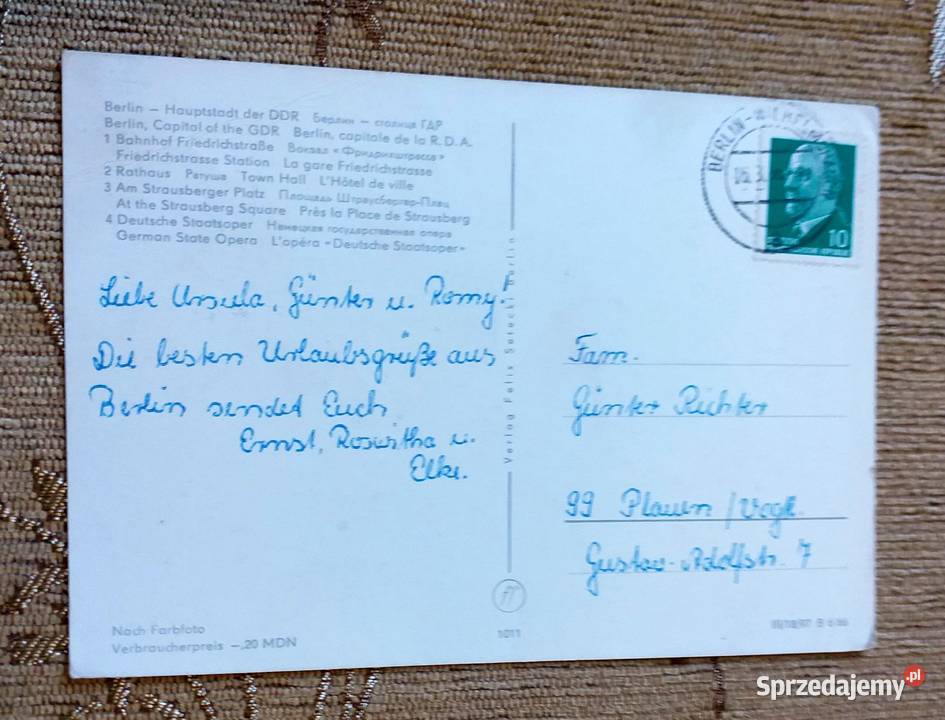 Berlin – Hauptstadt der DDR Берлин – столица ГДР
Berlin, Capital of the GDR Berlin, capitale de la R.D.A.
1 Bahnhof Friedrichstraße Вокзал «Фридрихштрассе»
Friedrichstrasse Station La gare Friedrichstrasse
2 Rathaus Ратуша Town Hall L'Hôtel de ville
3 Am Strausberger Platz Площадь Штраусбергер-Плац
At the Strausberg Square Près la Place de Strausberg
4 Deutsche Staatsoper Немецкая государственная опера
German State Opera L'opéra «Deutsche Staatsoper»
Liebe Ursula, Günter u. Romy!
Die besten Urlaubsgrüße aus
Berlin sendet Euch
Ernst, Roswitha u.
Elke.
Nach Farbfoto
Verbraucherpreis –,20 MDN
Verlag Felix Setecki Berlin
1011
BERLIN-
10
Fam.
Günter Richter
99 Plauen/Vogtl.
Gustav-Adolfstr. 7
Sprzedajemy.pl